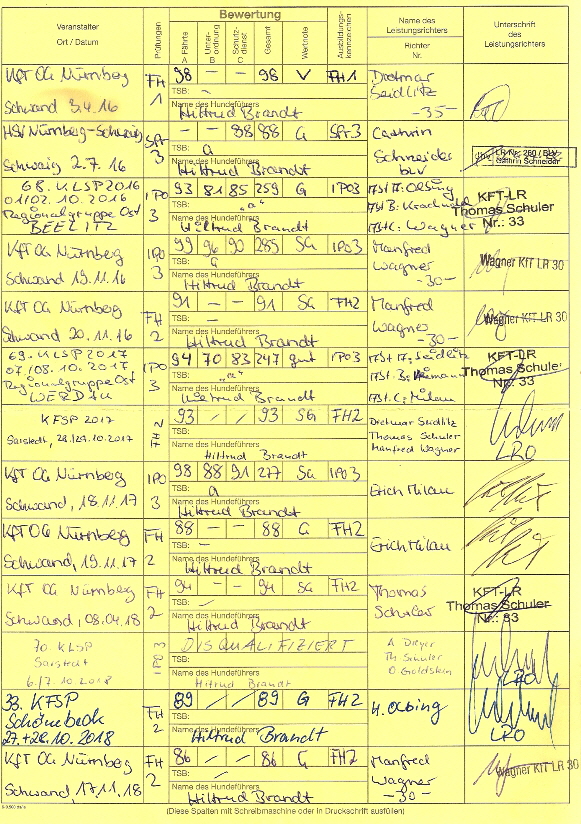 Veranstalter
Ort / Datum
Prüfungen
Bewertung
Fährte A
Unter-ordnung B
Schutz-dienst C
Gesamt
Wertnote
Ausbildungs-kennzeichen
Name des Leistungsrichters
Richter Nr.
Unterschrift des Leistungsrichters
KfT OG Nürnberg FH 1 98 – – 98 V FH1 Dietmar Seidlitz
TSB: –
Schwand 3.4.16 -35-
Name des Hundeführers
Hiltrud Brandt
HSV Nürnberg-Schwaig SPr 3 – – 88 88 G SPr.3 Cathrin
TSB: a
Schneider
Schwaig 2.7.16 BLV
LR Nr. 260 / BLV Cathrin Schneider
Name des Hundeführers
Hiltrud Brandt
68. KLSP 2016 IPO 3 93 81 85 259 G IPO3
01/02.10.2016
TSB: "a"
Regionalgruppe Ost
BEELITZ
Wagner
KFT-LR
Thomas Schuler
Nr.: 33
Name des Hundeführers
Hiltrud Brandt
KfT OG Nürnberg IPO 3 99 96 90 285 SG IPO3 Manfred
TSB: a
Wagner
Schwand 19.11.16 -30-
Wagner KfT LR 30
Name des Hundeführers
Hiltrud Brandt
KfT OG Nürnberg FH 2 91 – – 91 SG FH2 Manfred
TSB: –
Wagner
Schwand 20.11.16 -30-
Wagner KfT LR 30
Name des Hundeführers
Hiltrud Brandt
69. KLSP 2017 IPO 3 94 70 83 247 gut IPO3
07/08.10.2017
TSB: "a"
Regionalgruppe Ost
WERDAU
KFT-LR
Thomas Schuler
Nr. 33
Name des Hundeführers
Hiltrud Brandt
KFSP 2017 FH 2 93 / / 93 SG FH2 Dietmar Seidlitz
TSB:
Thomas Schuler
Sarstedt, 28./29.10.2017 Manfred Wagner
LRO
Name des Hundeführers
Hiltrud Brandt
KfT OG Nürnberg IPO 3 98 88 91 277 SG IPO3
TSB: a
Erich Milau
Schwand, 18.11.17
Name des Hundeführers
Hiltrud Brandt
KfT OG Nürnberg FH 2 88 – – 88 G FH2
TSB: –
Erich Milau
Schwand, 19.11.17
Name des Hundeführers
Hiltrud Brandt
KfT OG Nürnberg FH 2 94 – – 94 SG FH2 Thomas
TSB: –
Schuler
Schwand, 08.04.18
KFT-LR
Thomas Schuler
Nr.: 33
Name des Hundeführers
Hiltrud Brandt
70. KLSP IPO 3 DISQUALIFIZIERT A Dreyer
Sarstedt
TSB:
Th Schuler
6./7.10 2018 O Goldstein
LRO
Name des Hundeführers
Hiltrud Brandt
38. KFSP FH 2 89 / / 89 G FH2 H. Olbing
Schönebeck
TSB:
27.+28.10.2018
LRO
Name des Hundeführers
Hiltrud Brandt
KfT OG Nürnberg FH 2 86 – – 86 G FH2 Manfred
TSB: –
Wagner
Schwand, 17.11.18 -30-
Wagner KfT LR 30
Name des Hundeführers
Hiltrud Brandt
(Diese Spalten mit Schreibmaschine oder in Druckschrift ausfüllen)